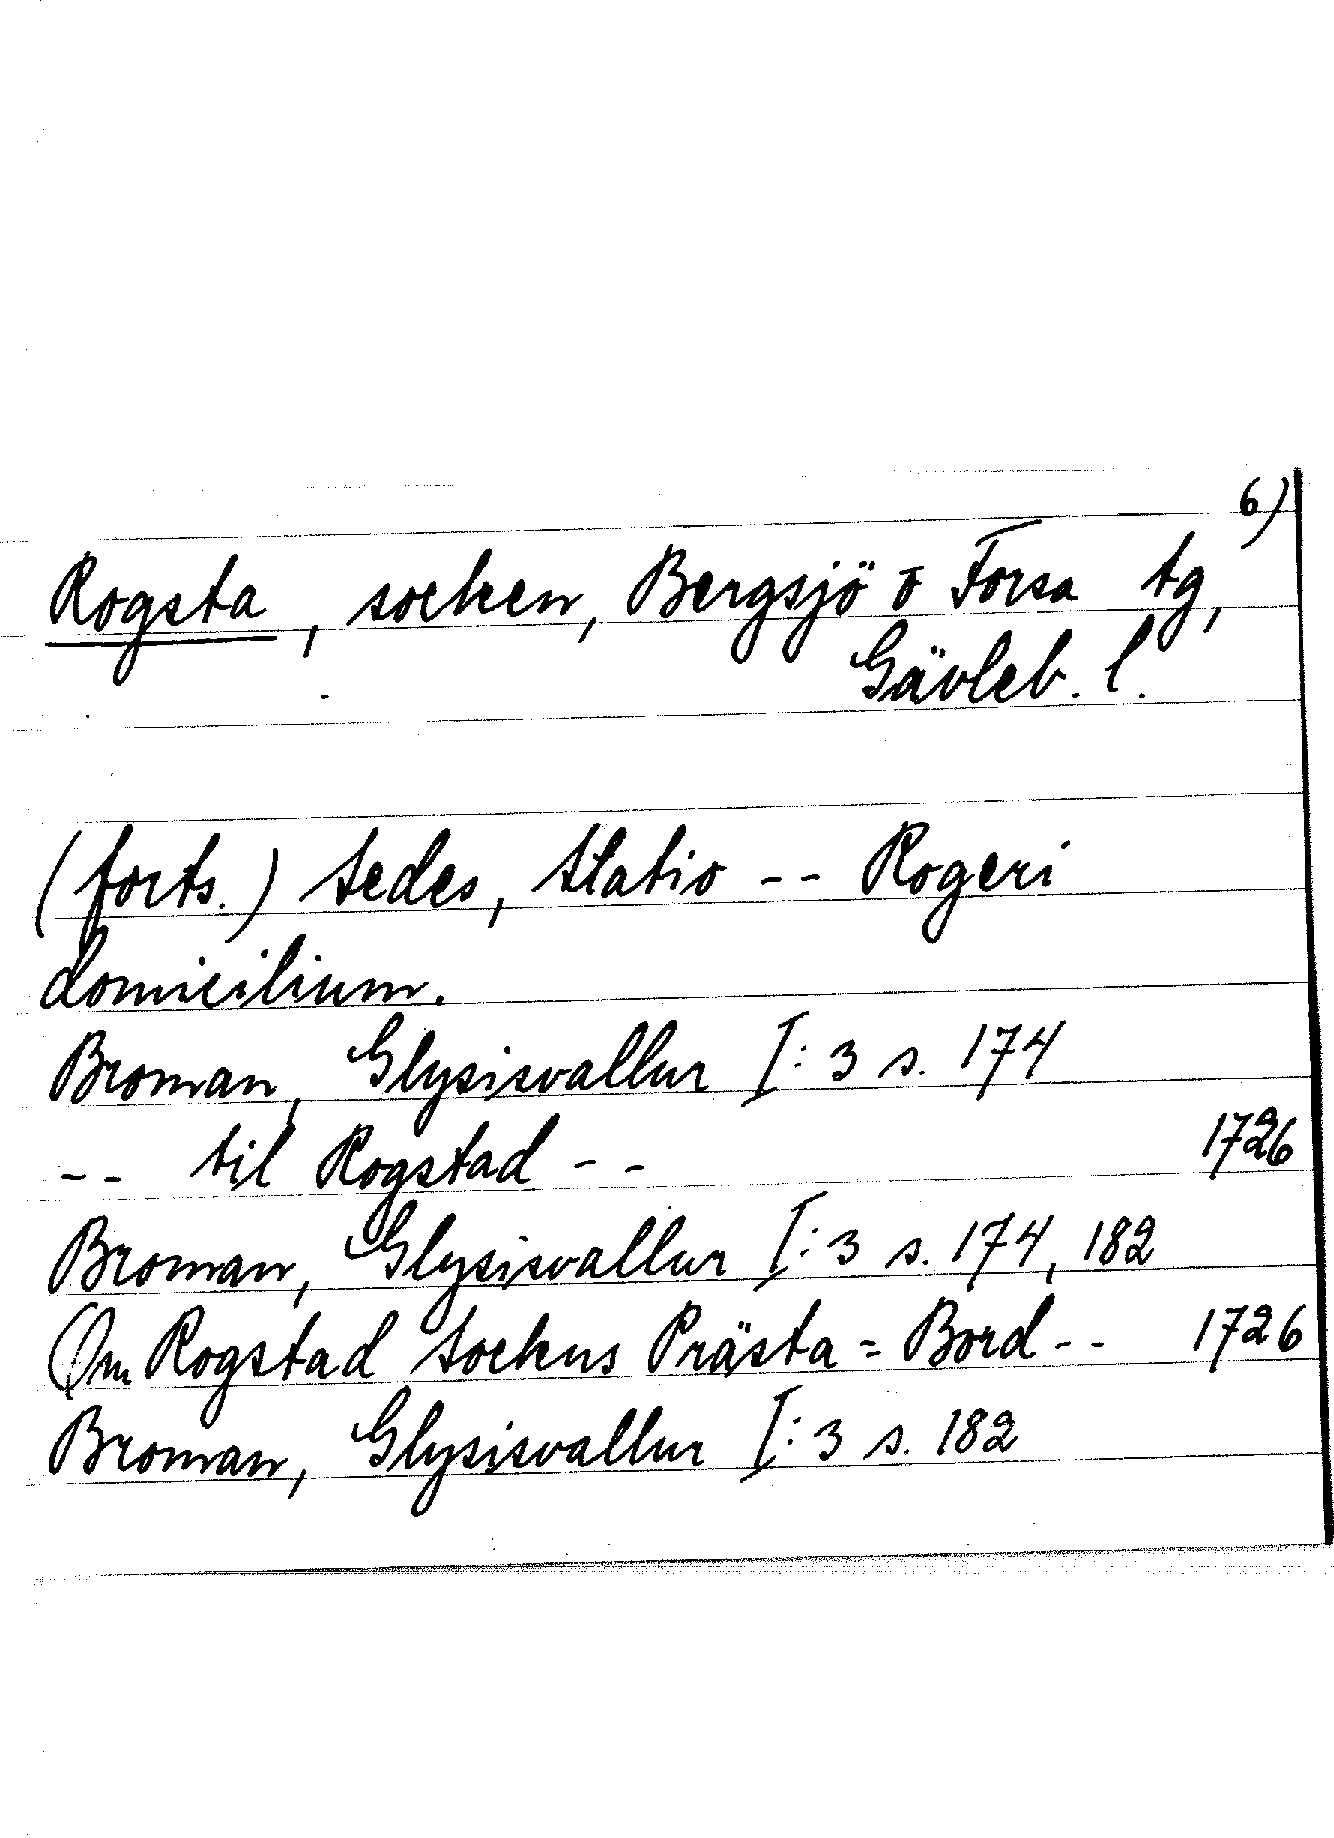 6)
Rogsta, socken, Bergsjö o Forsa tg,
Gävleb. l.
(forts.) sedes, statio -- Rogeri
domicilium.
Broman, Glysisvallur I:3 s. 174
-- til Rogstad -- 1726
Broman, Glysisvallur I:3 s. 174, 182
Om Rogstad Sockns Prästa=Bord -- 1726
Broman, Glysisvallur I:3 s. 182